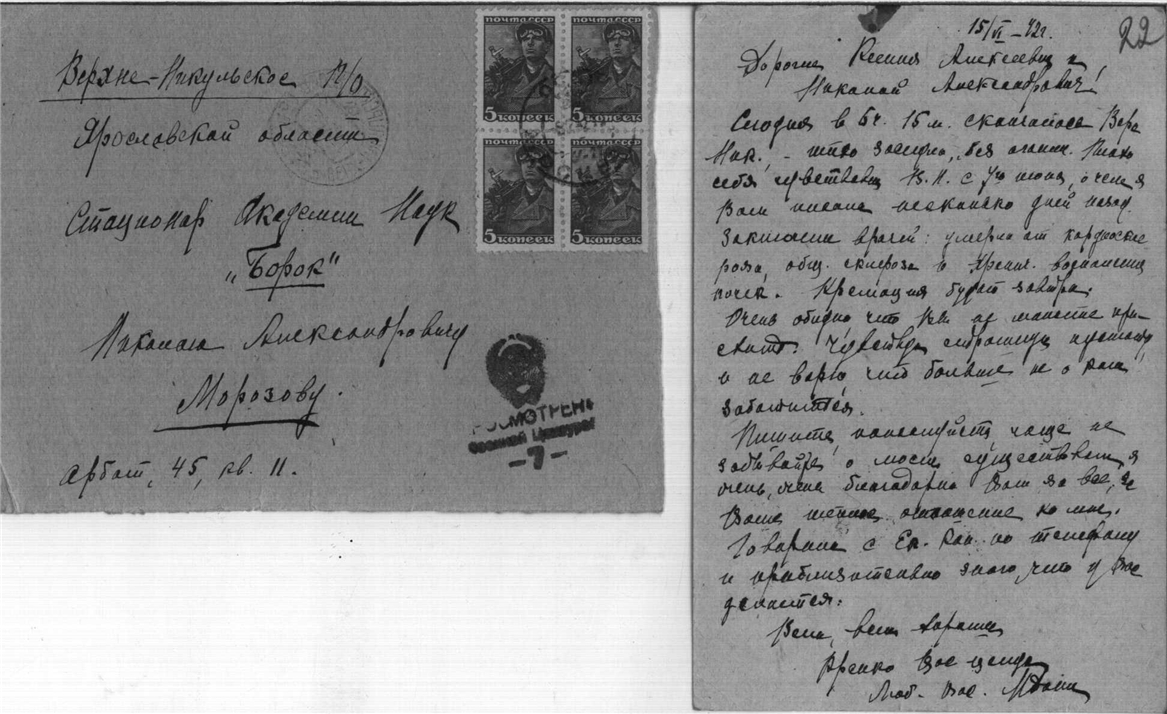 Верхне-Никульское П/О
Ярославской области
Стационар Академии Наук
„Борок"
Николаю Александровичу
Морозову.
Арбат, 45, кв. 11.
ПОЧТА СССР
ПОЧТА СССР
5 КОПЕЕК
5 КОПЕЕК
ПОЧТА СССР
ПОЧТА СССР
5 КОПЕЕК
5 КОПЕЕК
ПРОСМОТРЕНО
Военной Цензурой
- 7 -
22
15/VI - 42г.
Дорогие Ксения Алексеевна и
Николай Александрович!
Сегодня в 6 ч. 15 м. скончалась Вера
Ник., - тихо заснула, без агонии. Плохо
себя чувствовала В.Н. с июня, о чем я
Вам писала несколько дней назад.
Заключение врачей: умерла от кардиоскле
роза, общ. склероза и хронич. воспаления
почек. Кремация будет завтра.
Очень обидно что не
Чувствую пустоту
и не верю, что больше
Пишите, пожалуйста, чаще не
забывайте о моем существовании я
очень, очень благодарна Вам за все, за
Ваше отношение ко мне.
Говорила с Ек. по телефону
и приблизительно знаю, что у Вас
делается.
Всего, всего хорошего
Крепко Вас целую
Люб. Вас.